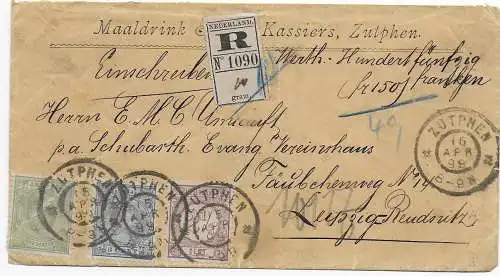 Maaldrink & Kassiers, Zutphen.
NEDERLAND.
R
No 1090
gram.
Einschreiben Werth-Hundertfünfzig
fr 150 franken
Herrn E. M. C.
p.a. Schubarth. Evang Vereinshaus
49
Täubchenweg No 14
Leipzig-Reudnitz
ZUTPHEN
15
APR
98
6-9N
ZUTPHEN
ZUTPHEN
ZUTPHEN